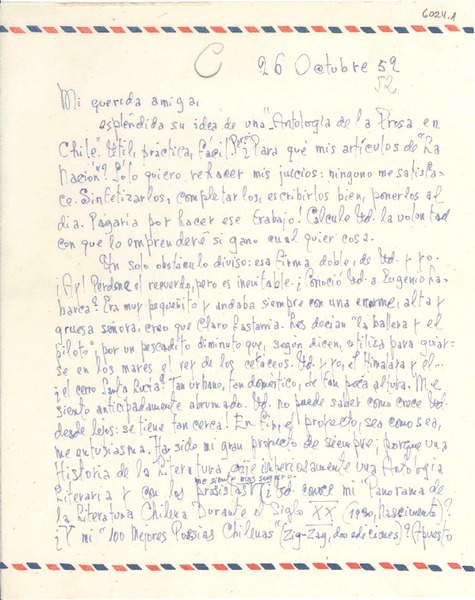 6024.1
C 26 Octubre 52
52
Mi querida amiga,
espléndida su idea de una "Antología de la Prosa en
Chile". Util, práctica, fácil. Pero: ¿Para qué mis artículos de "La
Nación"? Sólo quiero rehacer mis juicios: ninguno me satisfa-
ce. Sintetizarlos, completarlos, escribirlos bien, ponerlos al
día. Pagaría por hacer ese trabajo! Calcule Ud. la voluntad
con que lo emprenderé si gano cualquier cosa.
Un solo obstáculo diviso: esa firma doble, de Ud. y yo.
¡Ay! Perdone el recuerdo, pero es inevitable. ¿Conoció Ud. a Eugenio La-
barca? Era muy pequeñito y andaba siempre con una enorme, alta y
gruesa señora, creo que Claro Lastarria. Les decían "la ballena y el
piloto", por un pescadito diminuto que, según dicen, utiliza para guiar-
se en los mares el rey de los cetáceos. Ud. y yo, el Himalaya y él...
¡el cerro Santa Lucía! tan urbano, tan doméstico, de tan poca altura. Me
siento anticipadamente abrumado. Ud. no puede saber como crece Ud.
desde lejos: se tiene tan cerca! En fin, el proyecto, sea como sea,
me entusiasma. Ha sido mi gran proyecto de siempre; porque una
Historia de la Literatura exije imperiosamente una Antología
Literaria y con los prosistas me siento más seguro. (¿Ud. conoce mi "Panorama de
la Literatura Chilena Durante el Siglo XX (1930, Nascimento)?
¿Y mi "100 Mejores Poesías Chilenas" (Zig-Zag, dos ediciones)? (Apuesto